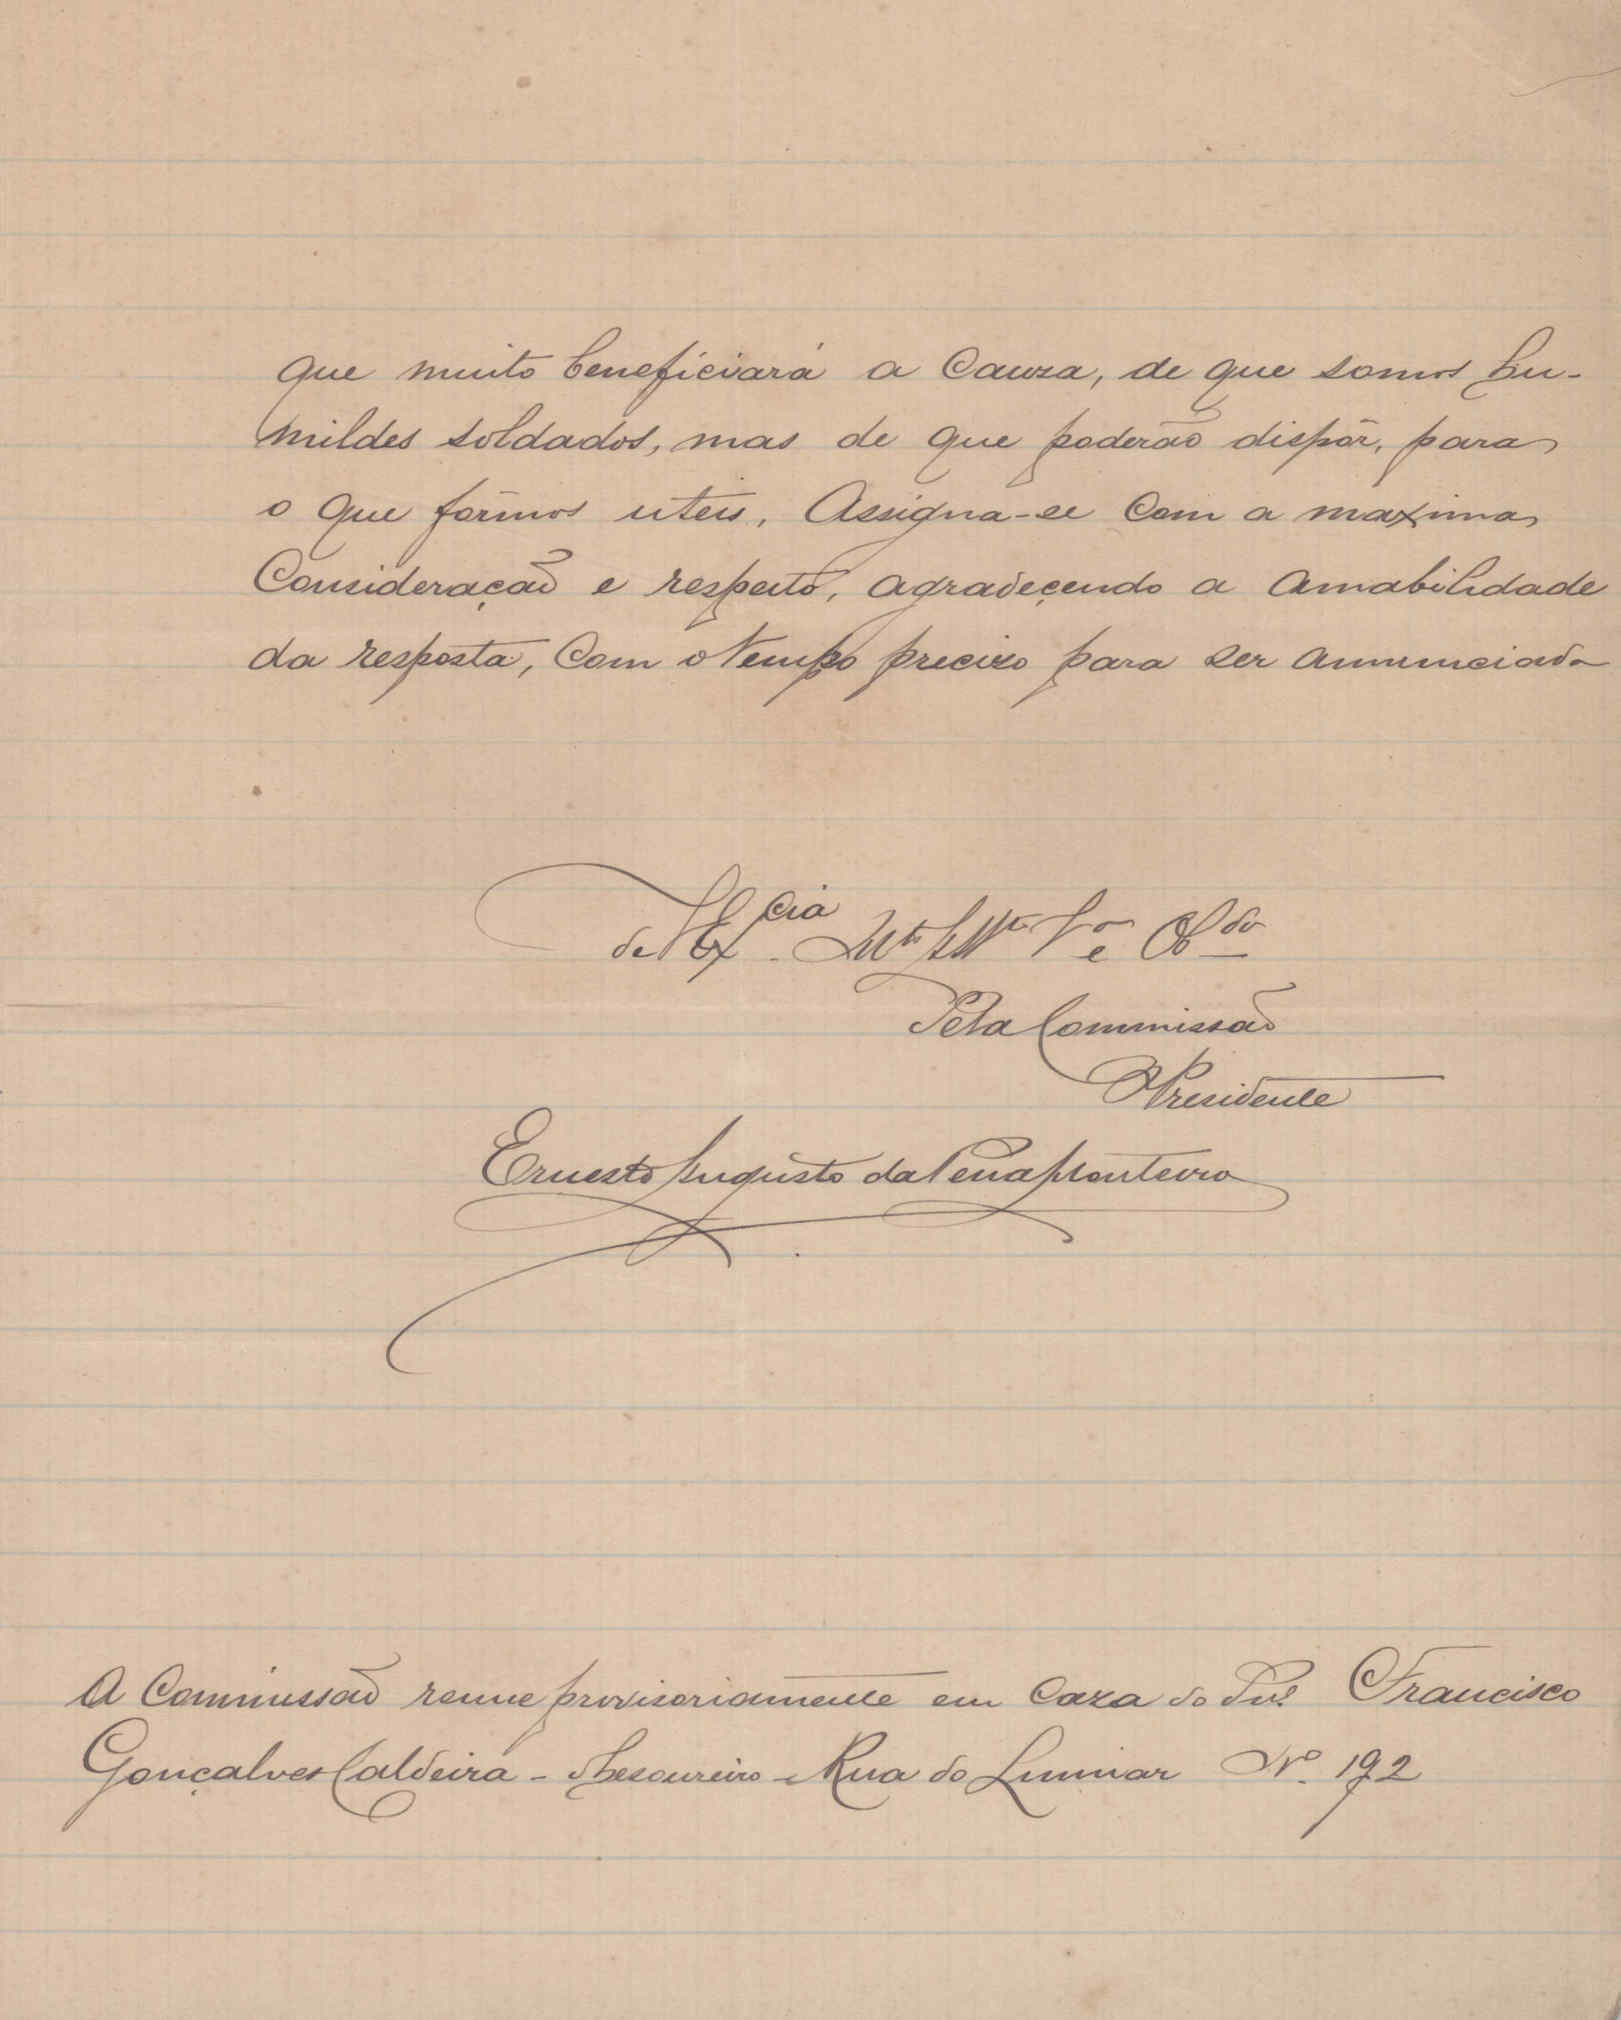 que muito beneficiará a Cauza, de que somos hu-
mildes soldados, mas de que poderão dispôr, para
o que fôrmos uteis. Assigna-se com a maxima
Consideração e respeito, agradeçendo a amabilidade
da resposta, Com o tempo precizo para ser annunciada
de V Ex.cia Mto Vor e Obdo
Pela Commissão
O Presidente
Ernesto Augusto da Pena Monteiro
A Commissão reune provisoriamente em Caza do Snr. Francisco
Gonçalves Caldeira - Thesoureiro - Rua do Lumiar Nº 192